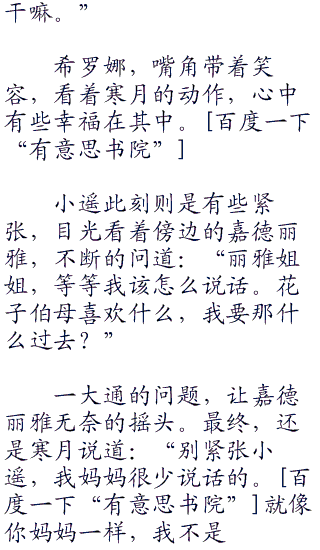 干嘛。”
希罗娜，嘴角带着笑
容，看着寒月的动作，心中
有些幸福在其中。[百度一下
“有意思书院”]
小遥此刻则是有些紧
张，目光看着傍边的嘉德丽
雅，不断的问道：“丽雅姐
姐，等等我该怎么说话。花
子伯母喜欢什么，我要那什
么过去？”
一大通的问题，让嘉德
丽雅无奈的摇头。最终，还
是寒月说道：“别紧张小
遥，我妈妈很少说话的。[百
度一下“有意思书院”]就像
你妈妈一样，我不是